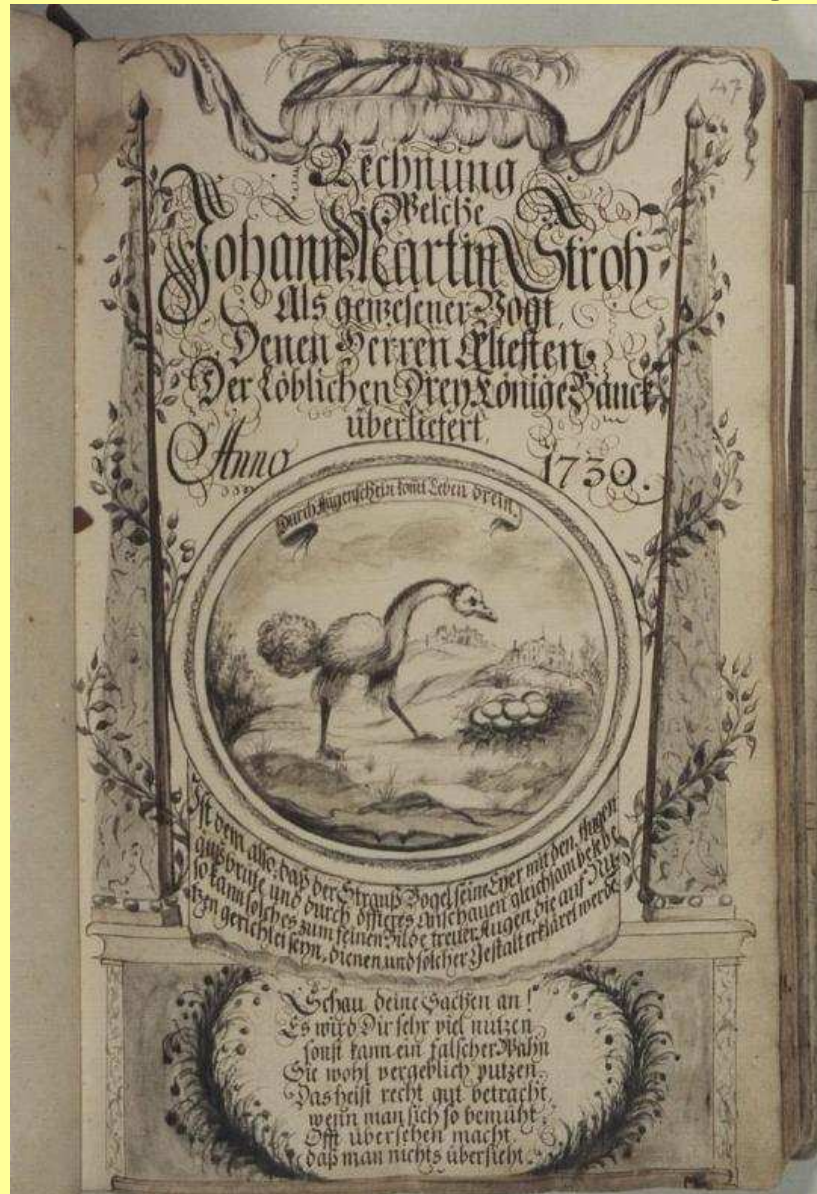 47
Rechnung
Welche
Johann Martin Stroh
Als gewesener Vogt,
Denen Herren Ältesten
Der Löblichen Drey Könige Banck
überliefert,
Anno 1730.
Durch Augenschein komt Leben drein.
Ist dem also, daß der Strauß Vogel seine Eyer mit den Augen
außbrüte und durch öffteres Anschauen gleichsam belebe
so kann solches zum feinen Bilde treuer Augen, die auf Nu-
tzen gerichtet seyn, dienen und solcher Gestalt erkläret werdē.
Schau deine Sachen an!
Es wird Dir sehr viel nutzen,
sonst kann ein falscher Wahn
Sie wohl vergeblich putzen.
Das heist recht gut betracht,
wenn man sich so bemüht,
Offt übersehen macht
daß man nichts übersieht.